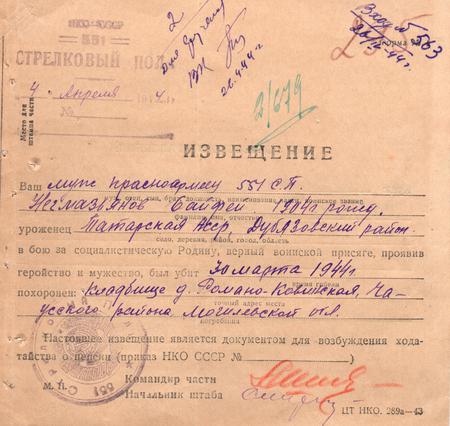 НКО-СССР
551
СТРЕЛКОВЫЙ ПОЛК
4 Апреля 1944 г.
№
Место для штампа части
2
26.4.44 г.
Вход № 563
26/IV-44 г.
2/679
ИЗВЕЩЕНИЕ
Ваш муж красноармеец 551 С.П.
(муж, сын, брат, должность, наименование части, военное звание)
1904 г рожд.
фамилия, имя, отчество
уроженец Татарская АССР, Дубязовский район
село, деревня, район, город, область
в бою за социалистическую Родину, верный воинской присяге, проявив
геройство и мужество, был убит 30 марта 1944 г
время гибели
похоронен: кладбище д. Романо-Ковинская, Ча-
точный адрес места
усского района Могилевской обл.
погребения
Настоящее извещение является документом для возбуждения хода-
тайства о пенсии (приказ НКО СССР №
М. П.
Командир части
Начальник штаба
551
ЦТ НКО. 289а—43